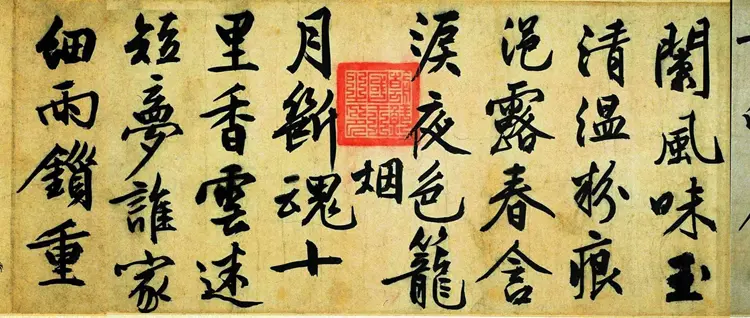 蘭風味玉
清温粉痕
浥露春含
淚夜色籠
烟
月斷魂十
里香雲迷
短夢誰家
細雨鎖重